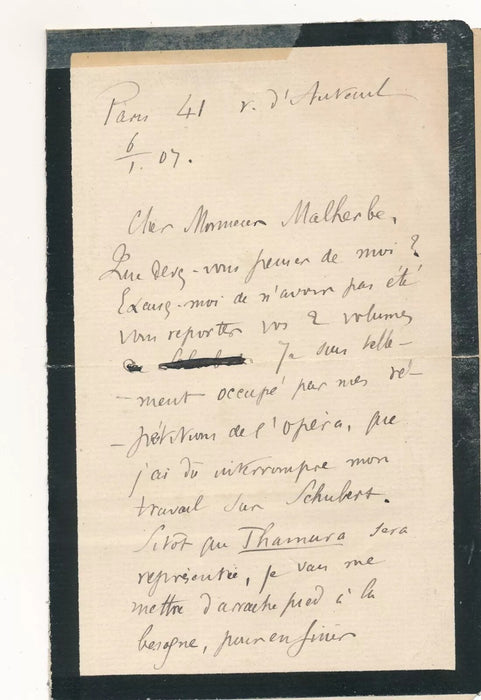 Paris 41 r. d'Auteuil
6/1. 07.
Cher Monsieur Malherbe,
Que devez-vous penser de moi?
Excusez-moi de n'avoir pas été
vous reporter vos 2 volumes
Je suis telle-
-ment occupé par mes ré-
-pétitions de l'opéra, que
j'ai dû interrompre mon
travail sur Schubert.
Sitôt que Thamara sera
représentée, je vais me
mettre d'arrache pied à la
besogne, pour en finir